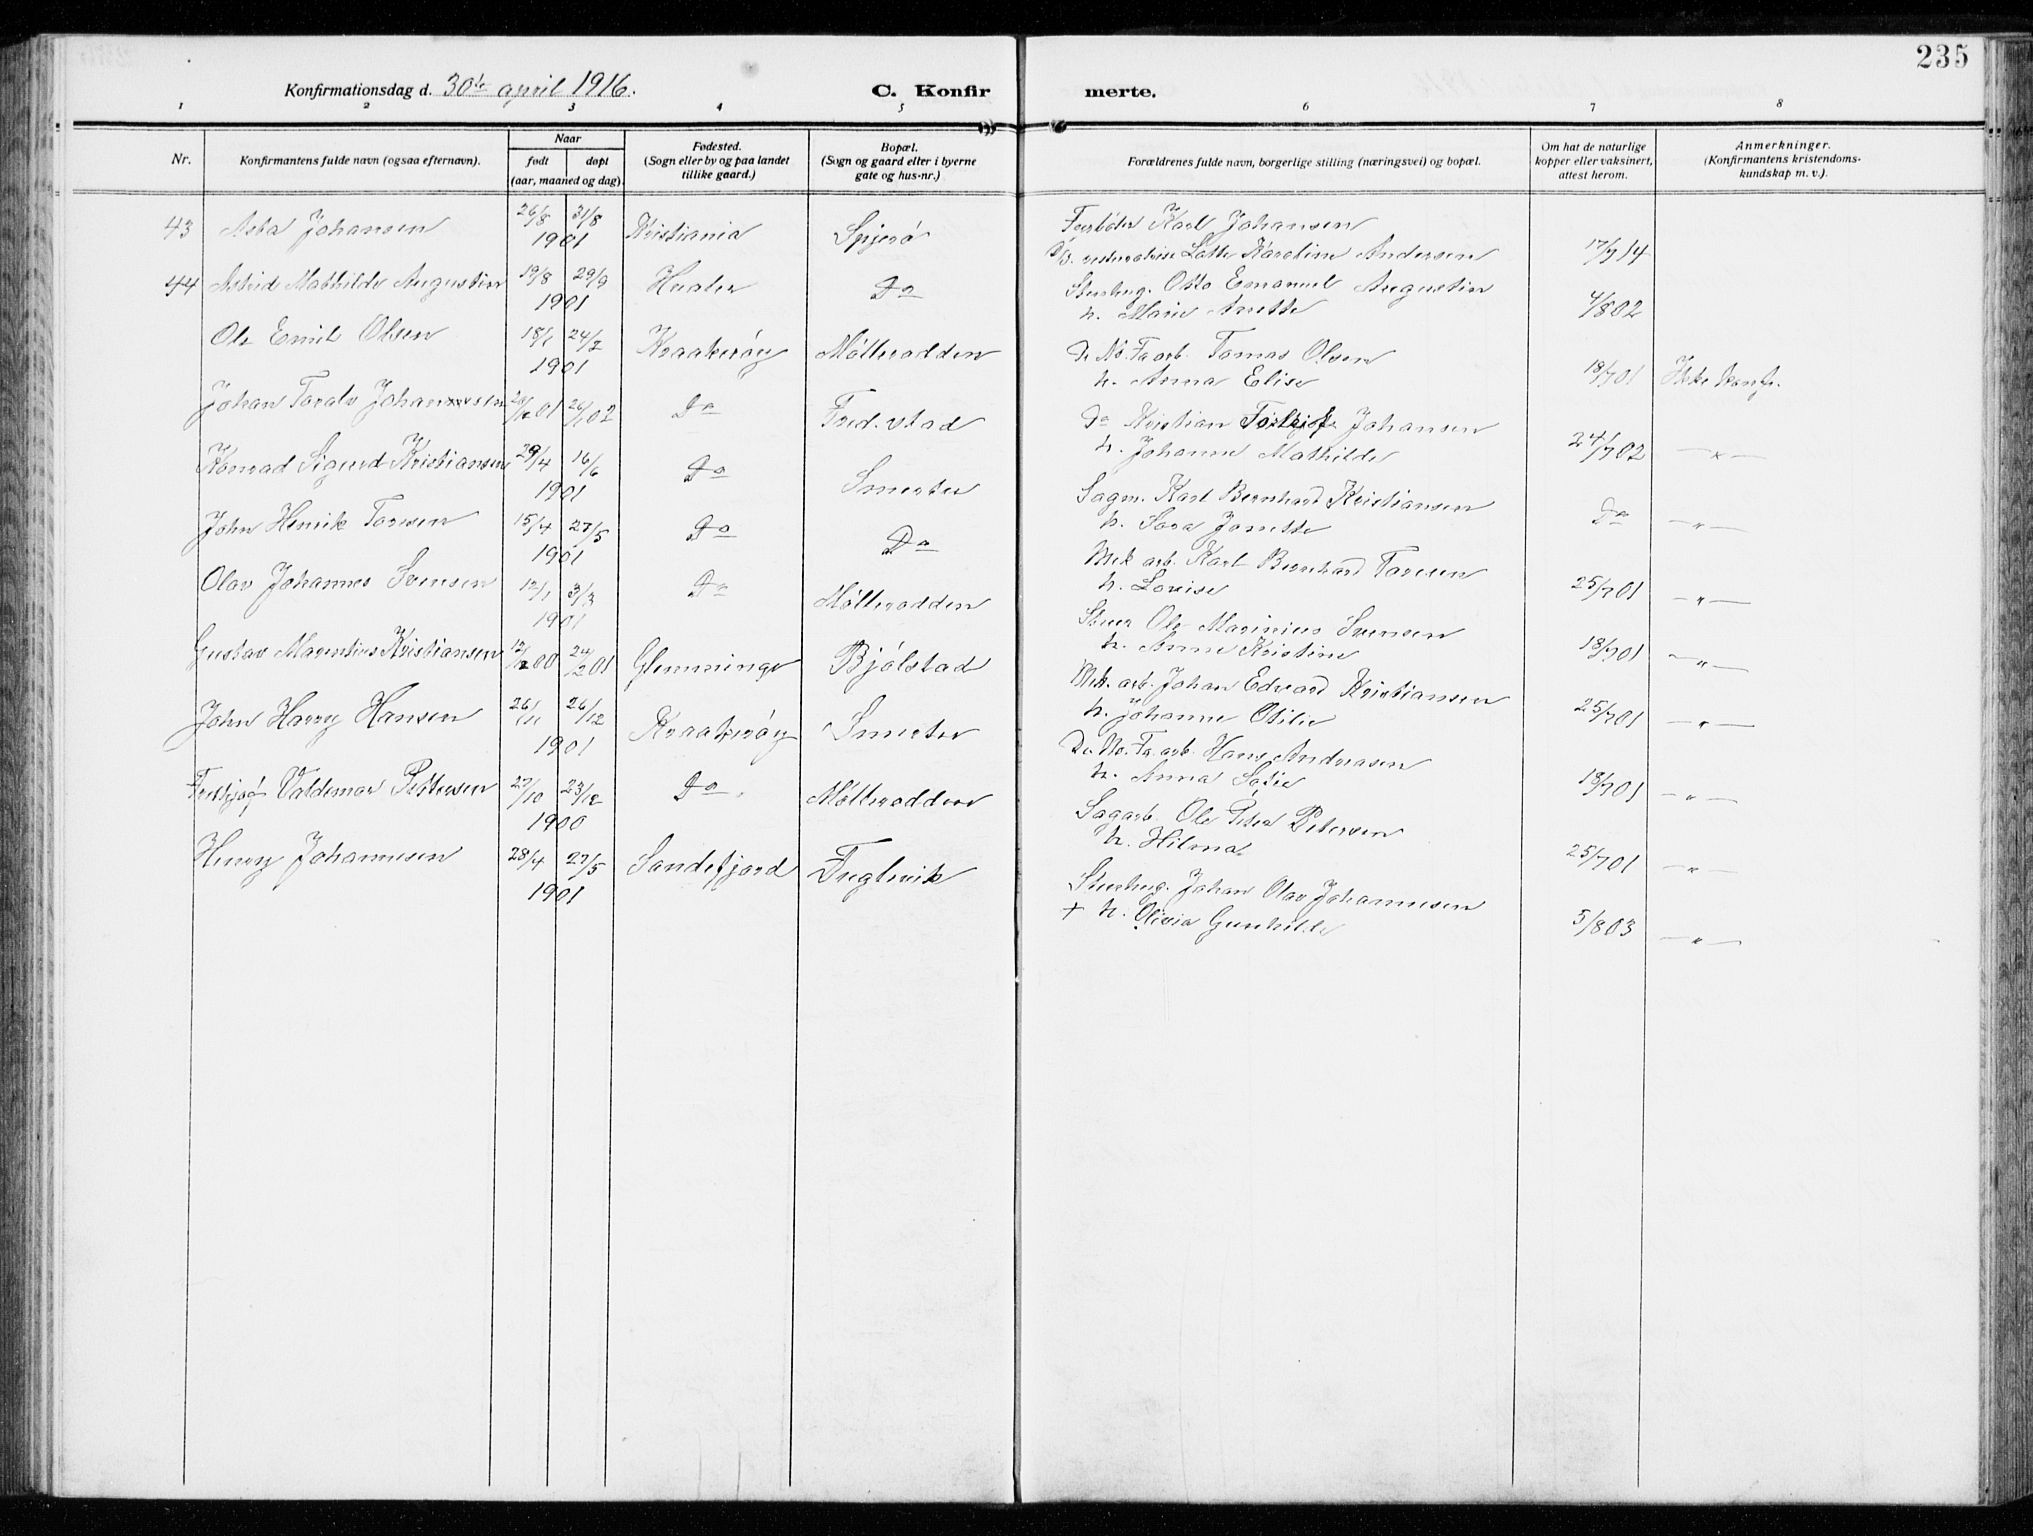 235
Konfirmationsdag d. 30te april 1916.
C. Konfir
merte.
1 2 3 4 5 6 7 8
Nr.
Konfirmantens fulde navn (ogsaa efternavn).
Naar
født døpt
(aar, maaned og dag).
Fødested.
(Sogn eller by og paa landet
tillike gaard.)
Bopæl.
(Sogn og gaard eller i byerne
gate og hus-nr.)
Forældrenes fulde navn, borgerlige stilling (næringsvei) og bopæl.
Om hat de naturlige
kopper eller vaksinert,
attest herom.
Anmerkninger.
(Konfirmantens kristendoms-
kundskap m. v.).
43 Asta Johansen 26/8 31/8 1901 Kristiania Spjerø
Fyrbøter Karl Johansen
Lotte Karoline Andersen 17/7 14
44 Astrid Mathilde Augustin 19/8 29/9 1901 Hvaler Do
Stenhug. Otto Emanuel Augustin
h. Marie Anette 4/8 02
Ole Emil Olsen 18/1 24/2 1901 Kraakerøy Møllerodden
De No. Fa. arb. Tomas Olsen
h. Anna Elise 18/7 01 Ikke konf.
Johan Toralv Johansen 01 26/1 02 Do Fred.stad
Do Kristian Johansen
h. Johanne Mathilde 24/7 02 — „ —
Konrad Sigurd Kristiansen 29/4 16/6 1901 Do Smerter
Sagm. Karl Bernhard Kristiansen
h. Sara Janette Do — „ —
John Henrik Toresen 15/4 27/5 1901 Do Do
Mek arb. Karl Bernhard Toresen
h. Lovise 25/7 01 — „ —
Olav Johannes Svensen 12/1 3/3 1901 Do Møllerodden
Stuer Ole Marinius Svensen
h. Anne Kristine 18/7 01 — „ —
Gustav Marentius Kristiansen 12/12 00 24/2 01 Glemminge Bjølstad
Mek. arb. Johan Edvard Kristiansen
h. Johanne Otilie 25/7 01 — „ —
John Harry Hansen 26/11 26/12 1901 Kraakerøy Smerter
De No. Fa. arb. Hans Andreasen
h. Anna Sofie 18/7 01 — „ —
Fritjof Valdemar Pettersen 27/10 23/12 1900 Do Møllerodden
Sagarb. Ole Petter Petersen
h. Hilma 25/7 01 — „ —
Henry Johannesen 28/4 27/5 1901 Sandefjord Fuglevik
Stenhug. Johan Olav Johannesen
+ h. Olivia Gunhilde 5/8 03 — „ —